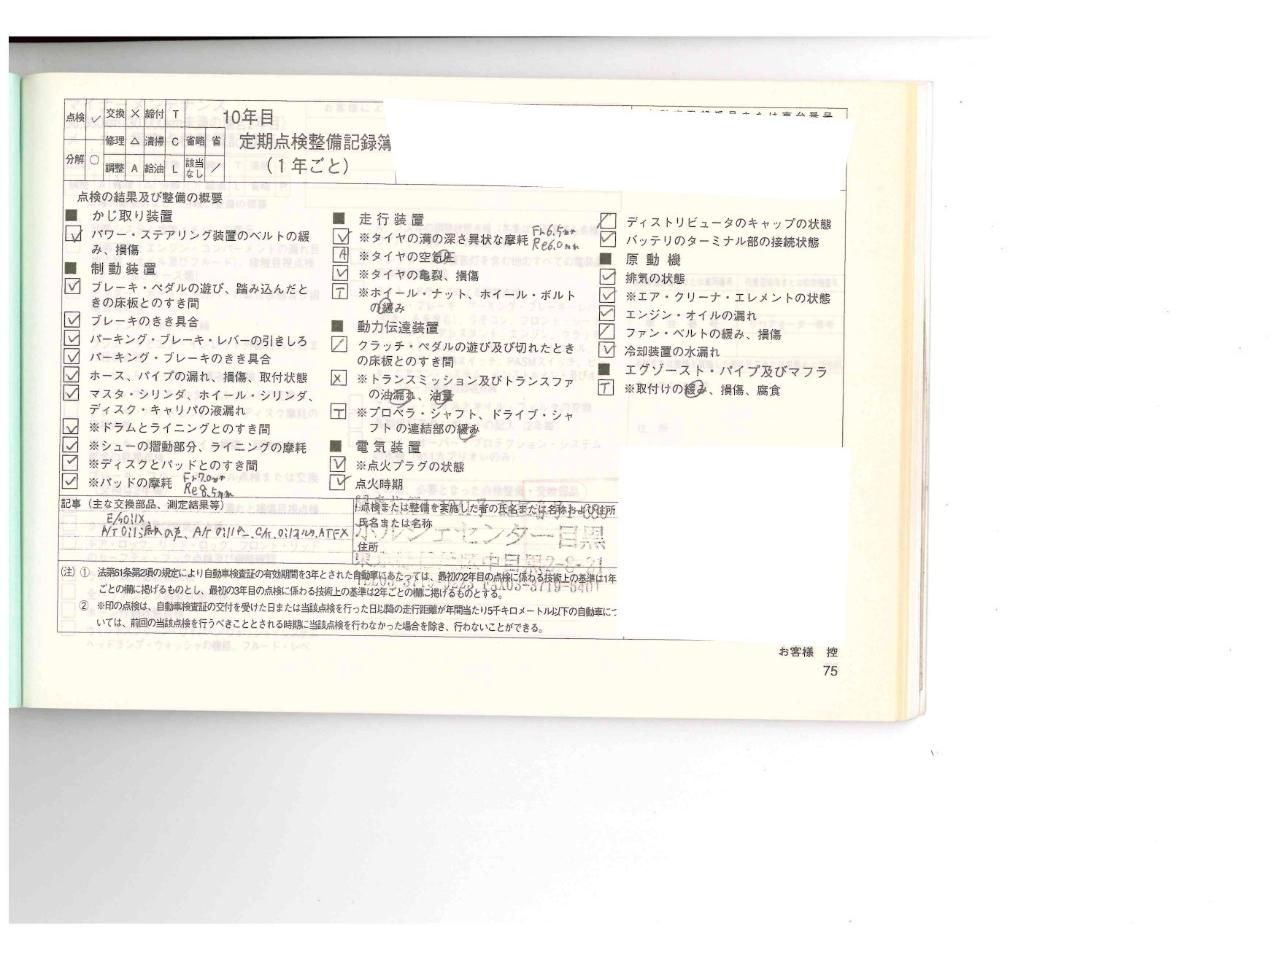 点検 ✓ 交換 × 締付 T
修理 △ 清掃 C 省略 省
分解 ○ 調整 A 給油 L 該当なし /
10年目
定期点検整備記録簿
(1年ごと)
点検の結果及び整備の概要
■ かじ取り装置
✓ パワー・ステアリング装置のベルトの緩
み、損傷
■ 制動装置
✓ ブレーキ・ペダルの遊び、踏み込んだと
きの床板とのすき間
✓ ブレーキのきき具合
✓ パーキング・ブレーキ・レバーの引きしろ
✓ パーキング・ブレーキのきき具合
✓ ホース、パイプの漏れ、損傷、取付状態
✓ マスタ・シリンダ、ホイール・シリンダ、
ディスク・キャリパの液漏れ
✓ ※ドラムとライニングとのすき間
✓ ※シューの摺動部分、ライニングの摩耗
✓ ※ディスクとパッドとのすき間
✓ ※パッドの摩耗 Fr7.0mm
Re8.5mm
■ 走行装置
✓ ※タイヤの溝の深さ異状な摩耗 Fr6.5mm
Re6.0mm
A ※タイヤの空気圧
✓ ※タイヤの亀裂、損傷
T ※ホイール・ナット、ホイール・ボルト
の緩み
■ 動力伝達装置
/ クラッチ・ペダルの遊び及び切れたとき
の床板とのすき間
× ※トランスミッション及びトランスファ
の油漏れ、油量
T ※プロペラ・シャフト、ドライブ・シャ
フトの連結部の緩み
■ 電気装置
✓ ※点火プラグの状態
✓ 点火時期
/ ディストリビュータのキャップの状態
✓ バッテリのターミナル部の接続状態
■ 原動機
✓ 排気の状態
✓ ※エア・クリーナ・エレメントの状態
✓ エンジン・オイルの漏れ
/ ファン・ベルトの緩み、損傷
✓ 冷却装置の水漏れ
■ エグゾースト・パイプ及びマフラ
T ※取付けの緩み、損傷、腐食
記事 (主な交換部品、測定結果等)
E/gOilX
ATFX
点検または整備を実施した者の氏名または名称および住所
氏名または名称
ポルシェセンター目黒
住所
中目黒2-8-21
(注) ① 法第61条第2項の規定により自動車検査証の有効期間を3年とされた自動車にあたっては、最初の2年目の点検に係わる技術上の基準は1年
ごとの欄に掲げるものとし、最初の3年目の点検に係わる技術上の基準は2年ごとの欄に掲げるものとする。
② ※印の点検は、自動車検査証の交付を受けた日または当該点検を行った日以降の走行距離が年間当たり5千キロメートル以下の自動車につ
いては、前回の当該点検を行うべきこととされる時期に当該点検を行わなかった場合を除き、行わないことができる。
お客様 控
75